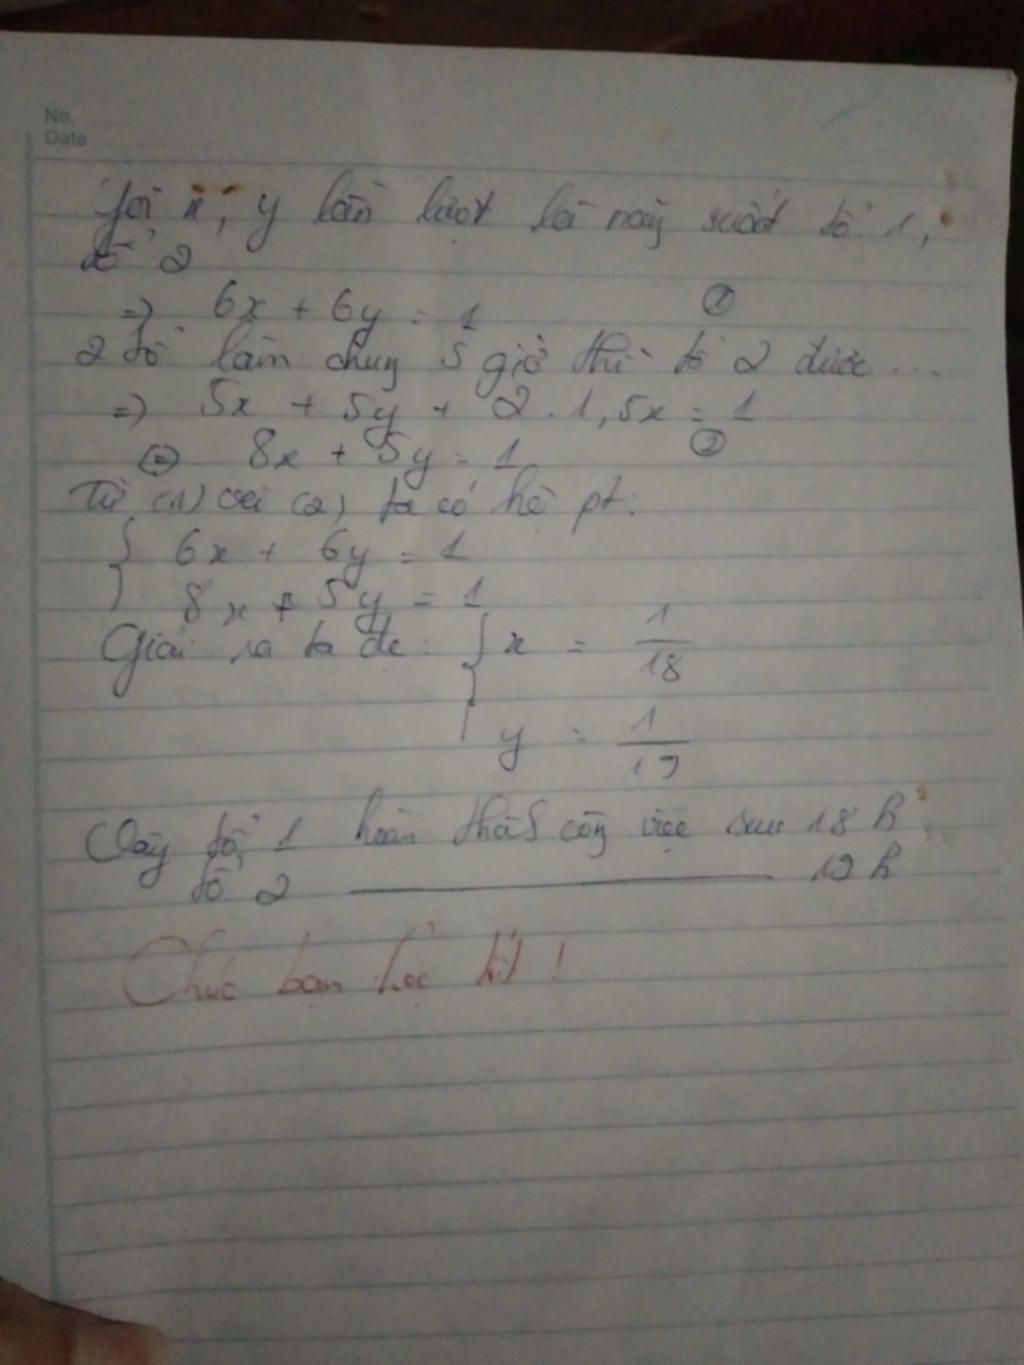 No.
Date
Gọi x, y lần lượt là năng suất tổ 1,
tổ 2
=> 6x + 6y = 1 ①
2 tổ làm chung 5 giờ thì tổ 2 được ...
=> 5x + 5y + 2 . 1,5x = 1
<=> 8x + 5y = 1 ②
Từ (1) và (2) ta có hệ pt:
{ 6x + 6y = 1
8x + 5y = 1
Giải ra ta đc : { x = 1/18
y = 1/12
Vậy tổ 1 hoàn thành công việc sau 18 h
tổ 2 ———— 12 h
Chúc bạn học tốt !